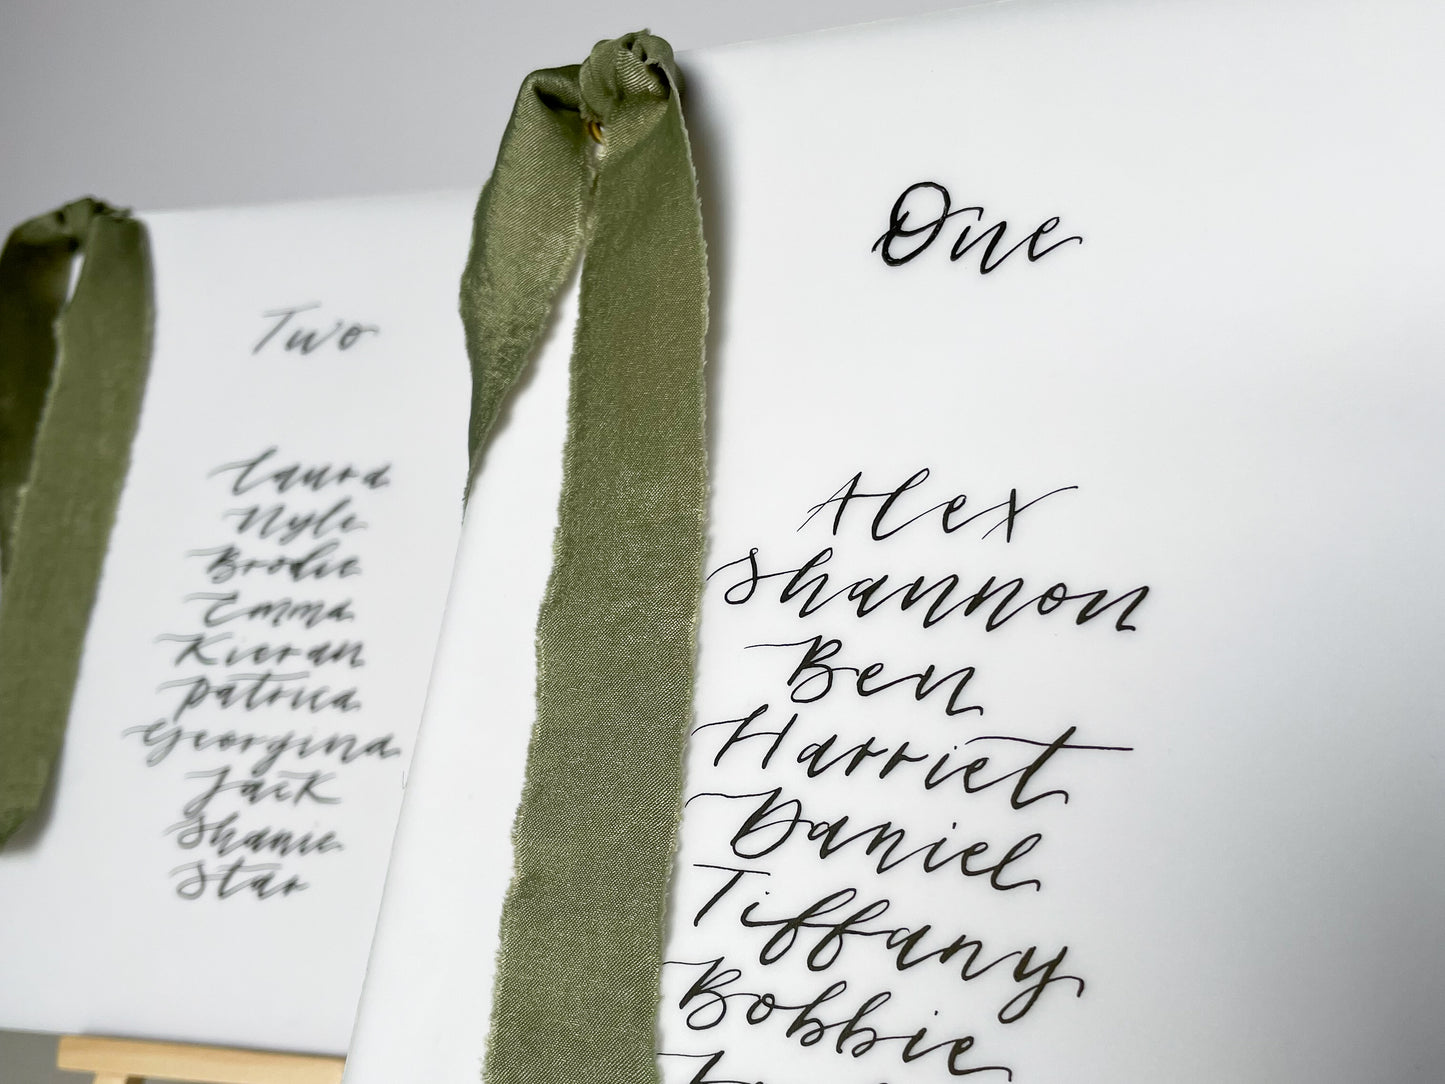 One
Alex
Shannon
Ben
Harriet
Daniel
Tiffany
Bobbie
Two
Laura
Nyle
Brodie
Emma
Kieran
Patrica
Georgina
Jack
Shanie
Star